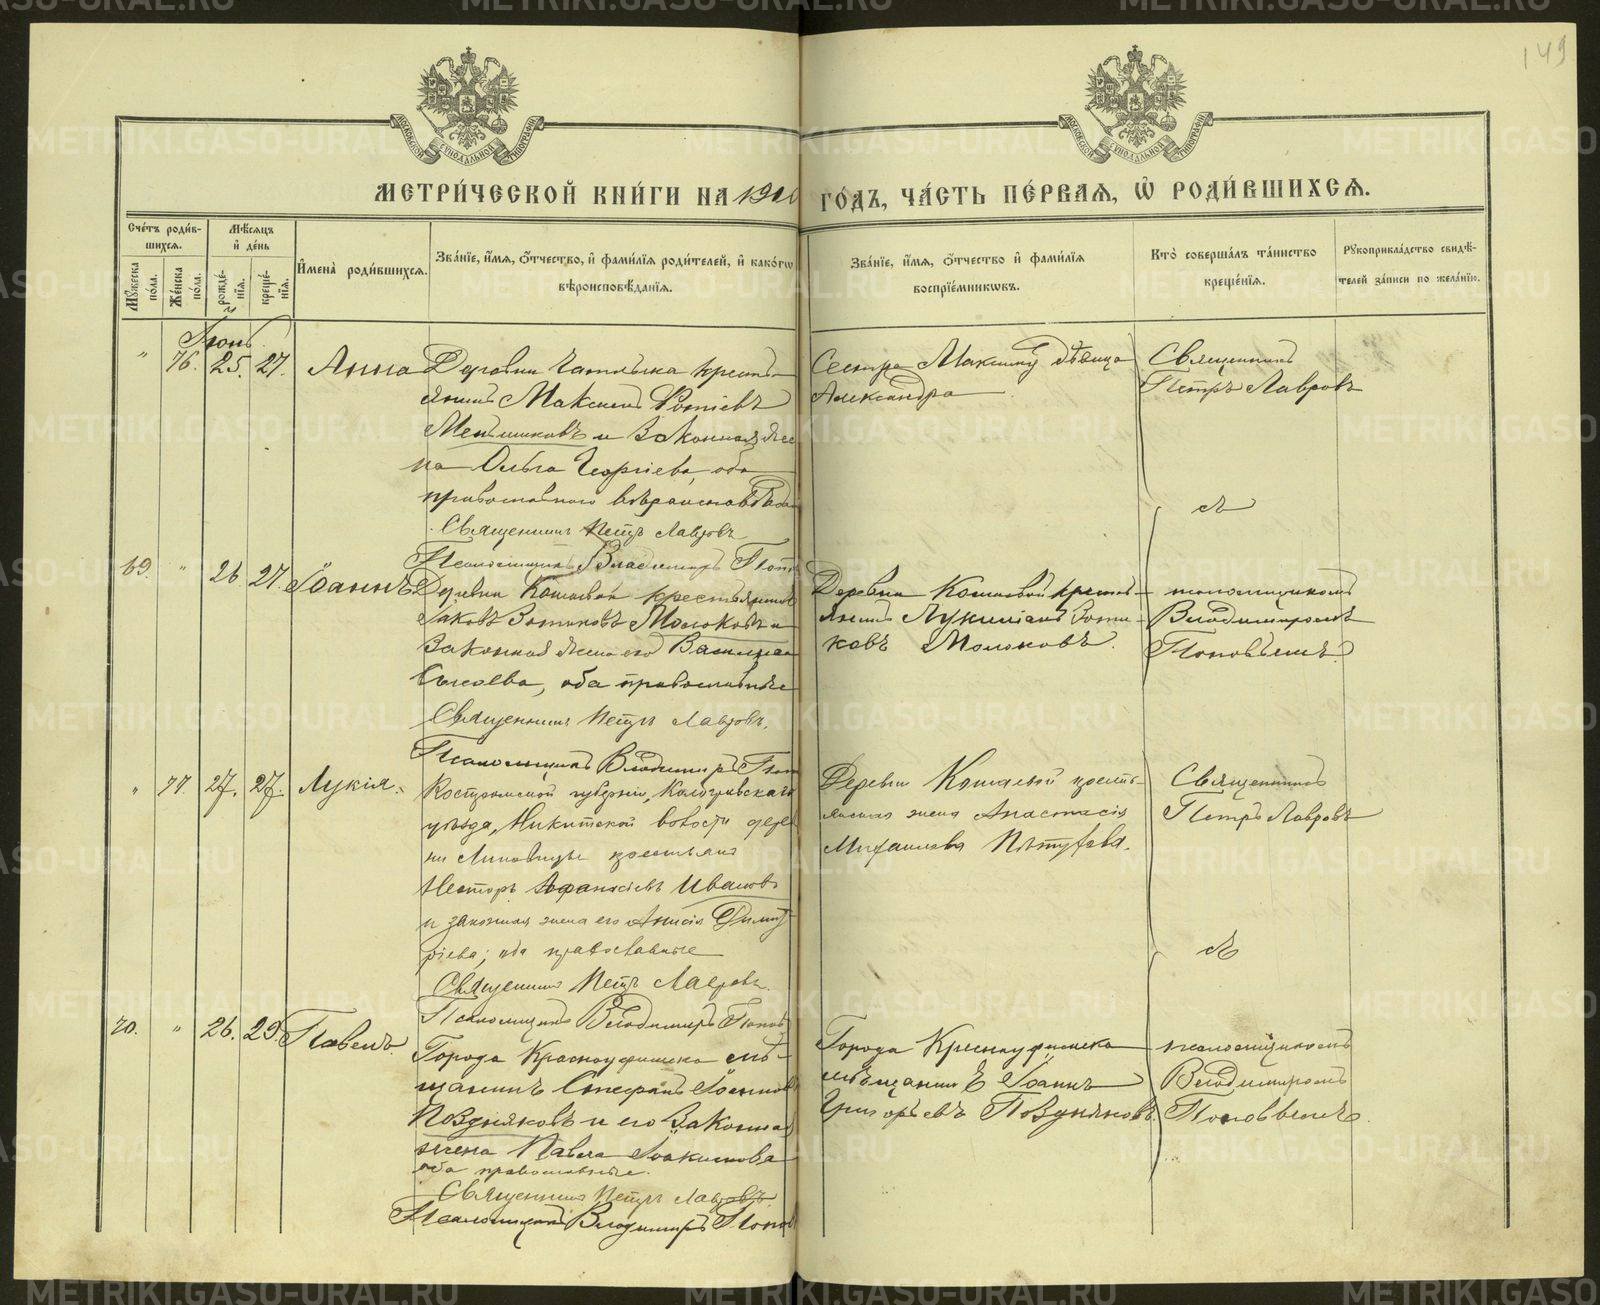 149
МЕТРИ́ЧЕСКОЙ КНИ́ГИ НА 1910 ГО́ДЪ, ЧА́СТЬ ПЕ́РВАЯ, Ѽ РОДИ́ВШИХСЯ.
Сче́тъ роди́в-
шихся.
Мѣ́сяцъ
и҆ де́нь
Мꙋ́жеска
по́ла.
Же́нска
по́ла.
рожде́-
нїѧ.
креще́-
нїѧ.
И҆мена̀ роди́вшихсѧ.
Зва́нїе, и҆́мѧ, ѻ҆́тчество, и҆ фами́лїѧ роди́телей, и҆ како́гѡ
вѣроисповѣ́данїѧ.
Зва́нїе, и҆́мѧ, ѻ҆́тчество и҆ фами́лїѧ
воспрїе́мникѡвъ.
Кто̀ соверша́лъ та́инство
креще́нїѧ.
Рꙋкоприкла́дство свидѣ́-
телей за́писи по жела́нїю.
Іюнь
" 76. 25. 27. Анна
Деревни крестъ-
янинъ Максимъ Фотіевъ
Меньшиковъ и законная же
на Ольга Георгіева, оба
православнаго вѣроисповѣда
Священникъ Петръ Лавровъ
Псаломщикъ Владимиръ Попов
Сестра Максима дѣвица
Александра
Священникъ
Петръ Лавровъ
69. " 26 27. Іоаннъ
Деревни Кошаевой крестьянинъ
Іаковъ Зотиковъ Молоковъ и
законная жена его Василиса
Сысоева, оба православные
Священникъ Петръ Лавровъ.
Псаломщикъ Владимиръ Попов
Деревни Кошаевой кресть-
янинъ Лукиліанъ Зоти-
ковъ Молоковъ.
съ
псаломщикомъ
Владимиромъ
Поповымъ
" 77. 27. 27. Лукія.
Костромской губерніи, Кологривскаго
уѣзда, Никитской волости дерев
ни крестьянинъ
Несторъ Афанасіевъ Ивановъ
и законная жена его Анисія Димит
ріева; оба православные
Священникъ Петръ Лавровъ.
Псаломщикъ Владимиръ Попов
Деревни Кошаевой кресть-
янская жена Анастасія
Михаилова Пѣтухова.
Священникъ
Петръ Лавровъ
70. " 26. 29. Павелъ.
Города Красноуфимска мѣ-
щанинъ Стефанъ Іоаннов
Поздняковъ и его законная
жена Павла Іоакимова
оба православные.
Священникъ Петръ Лавровъ
Псаломщикъ Владимиръ Попов
Города Красноуфимска
мѣщанинъ Іоаннъ
Григорьевъ Поздняковъ.
съ
псаломщикомъ
Владимиромъ
Поповымъ.
METRIKI.GASO-URAL.RU